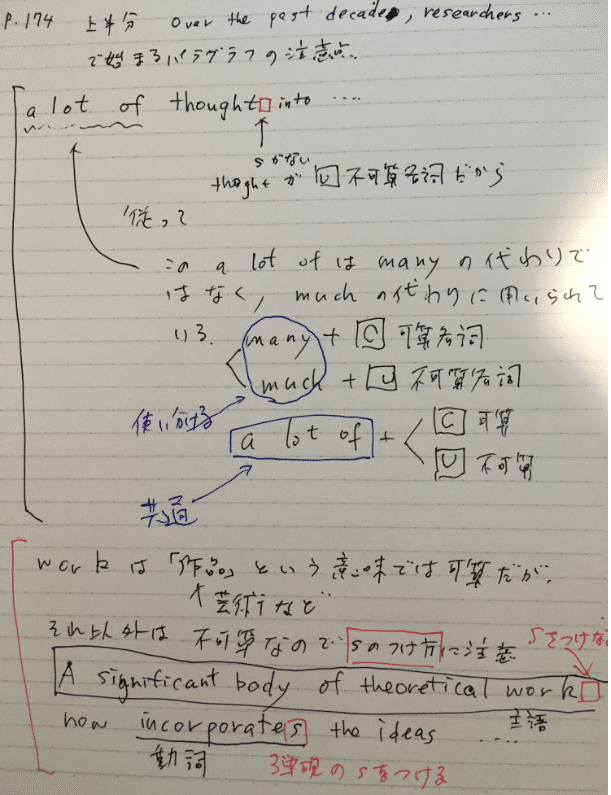 P.174 上半分 Over the past decade, researchers …
で始まるパラグラフの注意点
a lot of thought□into ....
sがない
thoght が U 不可算名詞だから
従って
この a lot of は many の代わりで
はなく, much の代わりに用いられて
いる.
many + C 可算名詞
much + U 不可算名詞
使い分ける
a lot of +
C 可算
U 不可算
共通
work は「作品」という意味では可算だが、
芸術など
それ以外は 不可算なので sのつけ方に注意
sをつけな
A significant body of theoretical work□
主語
now incorporates the ideas ....
動詞
3単現のsをつける